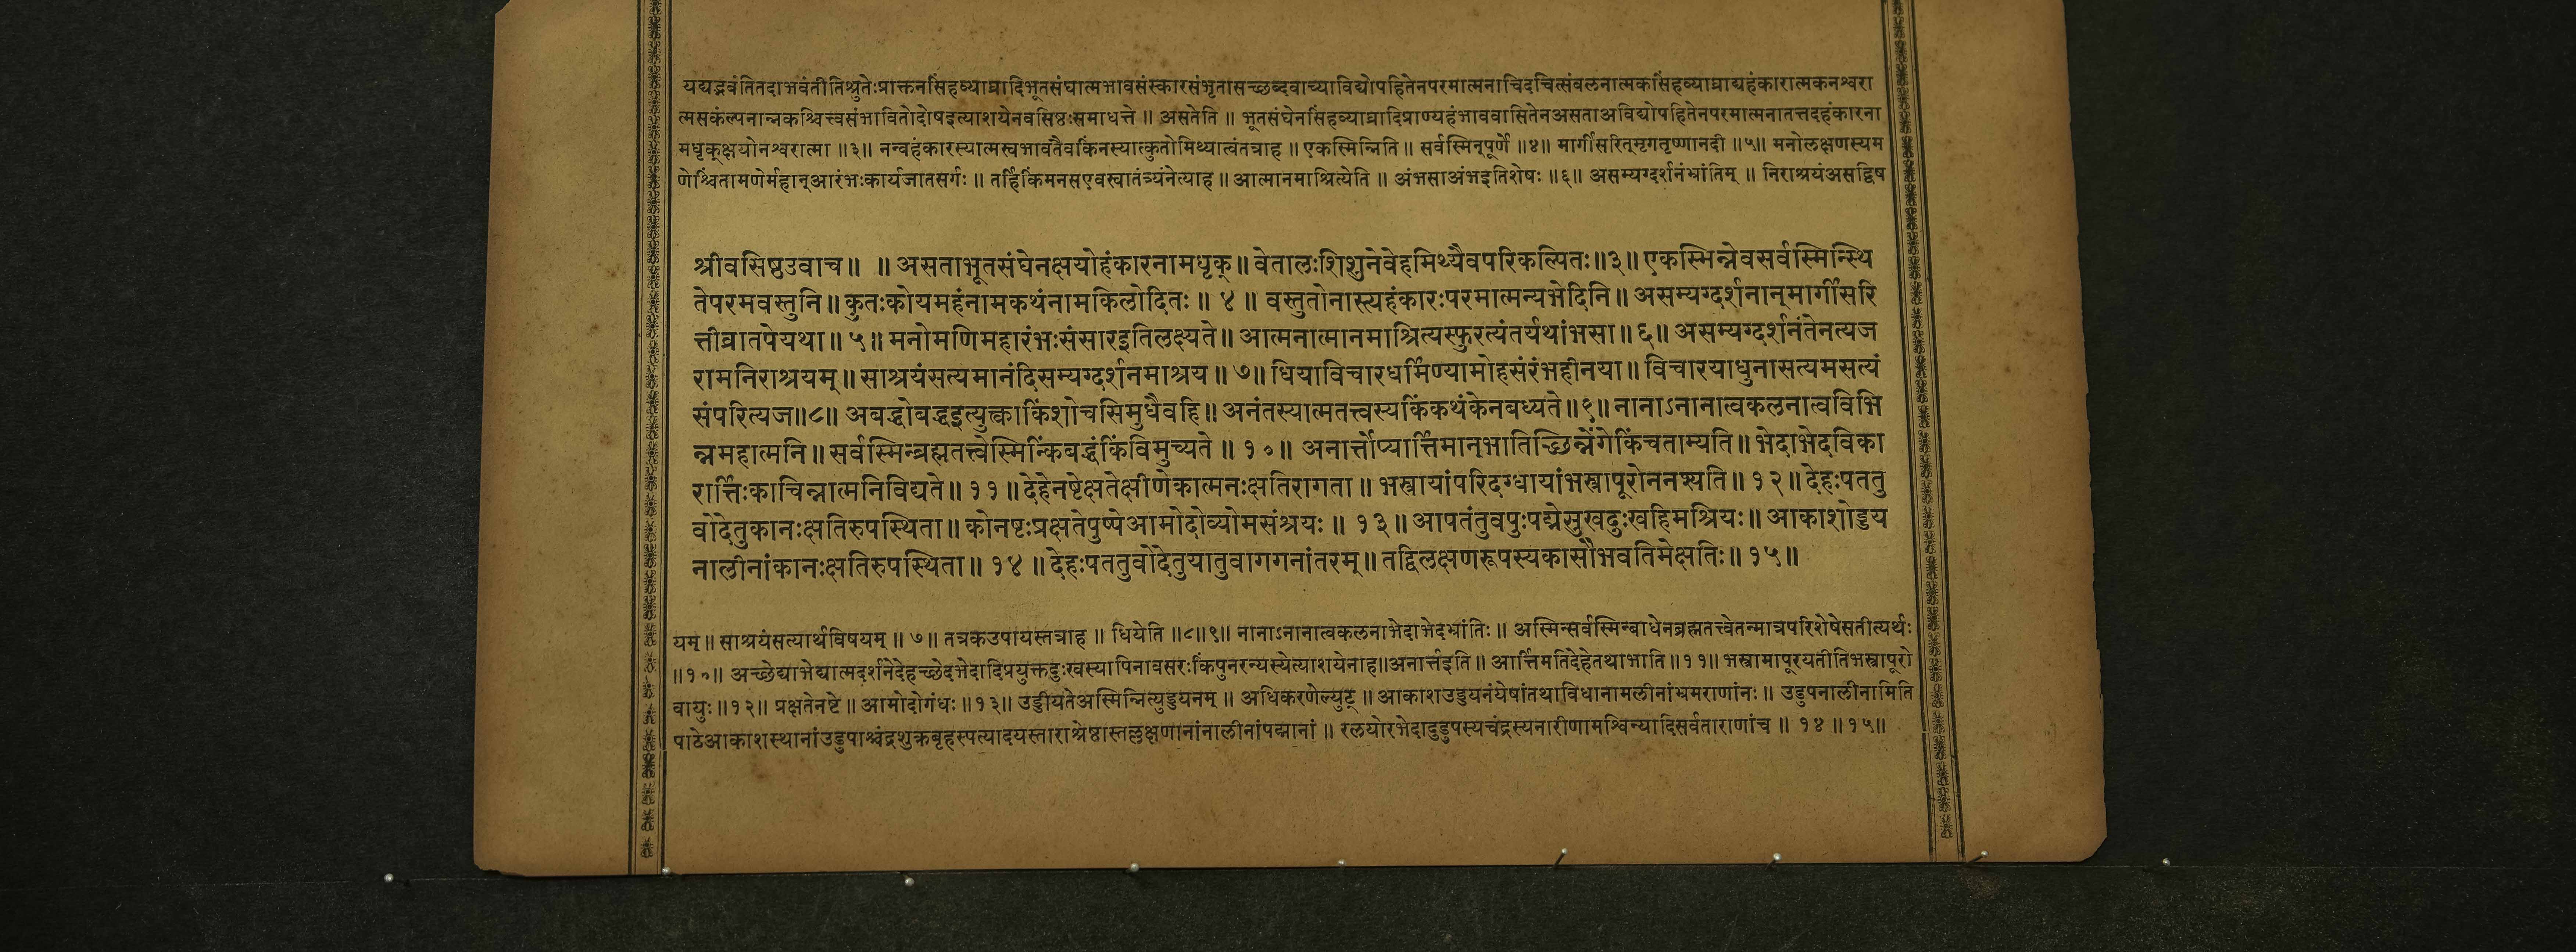 यद्यद्भवंतितदाभवंतीतिश्रुतेःप्राक्तनसिंहव्याघ्रादिभूतसंघात्मभावसंस्कारसंभृतासच्छब्दवाच्याविद्योपहितेनपरमात्मनाचिदचित्संवलनात्मकसिंहव्याघ्राद्यहंकारात्मकनश्वरा
त्मसकंल्पनान्नकश्चित्त्वसंभावितोदोषइत्याशयेनवसिष्ठःसमाधत्ते ॥ असतेति ॥ भूतसंघेनसिंहव्याघ्रादिप्राण्यहंभाववासितेनअसताअविद्योपहितेनपरमात्मनातत्तदहंकारना
मधृक्क्षयोनश्वरात्मा ॥३॥ नन्वहंकारस्यात्मस्वभावतैवकिंनस्यात्कुतोमिथ्यात्वंतत्राह ॥ एकस्मिन्निति ॥ सर्वस्मिन्पूर्णे ॥४॥ मार्गीसरित्मृगतृष्णानदी ॥५॥ मनोलक्षणस्यम
णेश्चिंतामणेर्महान्आरंभःकार्यजातसर्गः ॥ तर्हिकिंमनसएवस्वातंत्र्यंनेत्याह ॥ आत्मानमाश्रित्येति ॥ अंभसाअंभइतिशेषः ॥६॥ असम्यग्दर्शनंभ्रांतिम् ॥ निराश्रयंअसद्विष
श्रीवसिष्ठउवाच ॥ ॥ असताभूतसंघेनक्षयोहंकारनामधृक् ॥ वेतालःशिशुनेवेहमिथ्यैवपरिकल्पितः ॥३॥ एकस्मिन्नेवसर्वस्मिन्स्थि
तेपरमवस्तुनि ॥ कुतःकोयमहंनामकथंनामकिलोदितः ॥ ४ ॥ वस्तुतोनास्त्यहंकारःपरमात्मन्यभेदिनि ॥ असम्यग्दर्शनान्मार्गीसरि
त्तीव्रातपेयथा ॥ ५ ॥ मनोमणिमहारंभःसंसारइतिलक्ष्यते ॥ आत्मनात्मानमाश्रित्यस्फुरत्यंतर्यथांभसा ॥ ६ ॥ असम्यग्दर्शनंतेनत्यज
रामनिराश्रयम् ॥ साश्रयंसत्यमानंदिसम्यग्दर्शनमाश्रय ॥ ७ ॥ धियाविचारधर्मिण्यामोहसंरंभहीनया ॥ विचारयाधुनासत्यमसत्यं
संपरित्यज ॥८॥ अबद्धोबद्धइत्युक्त्वाकिंशोचसिमुधैवहि ॥ अनंतस्यात्मतत्त्वस्यकिंकथंकेनबध्यते ॥९॥ नानाऽनानात्वकलनात्वविभि
न्नमहात्मनि ॥ सर्वस्मिन्ब्रह्मतत्त्वेस्मिन्किंबद्धंकिंविमुच्यते ॥ १० ॥ अनार्त्तोप्यार्त्तिमान्भातिच्छिन्नेंगेकिंचताम्यति ॥ भेदाभेदविका
रार्त्तिःकाचिन्नात्मनिविद्यते ॥ ११ ॥ देहेनष्टेक्षतेक्षीणेकात्मनःक्षतिरागता ॥ भस्त्रायांपरिदग्धायांभस्त्रापूरोननश्यति ॥ १२ ॥ देहःपततु
वोदेतुकानःक्षतिरुपस्थिता ॥ कोनष्टःप्रक्षतेपुष्पेआमोदोव्योमसंश्रयः ॥ १३ ॥ आपतंतुवपुःपद्मेसुखदुःखहिमश्रियः ॥ आकाशोड्डय
नालीनांकानःक्षतिरुपस्थिता ॥ १४ ॥ देहःपततुवोदेतुयातुवागगनांतरम् ॥ तद्विलक्षणरूपस्यकासौभवतिमेक्षतिः ॥ १५ ॥
यम् ॥ साश्रयंसत्यार्थविषयम् ॥ ७ ॥ तत्रकउपायस्तत्राह ॥ धियेति ॥८॥९॥ नानाऽनानात्वकलनाभेदाभेदभ्रांतिः ॥ अस्मिन्सर्वस्मिन्बाधेनब्रह्मतत्त्वेतन्मात्रपरिशेषेसतीत्यर्थः
॥१०॥ अच्छेद्याभेद्यात्मदर्शनेदेहच्छेदभेदादिप्रयुक्तदुःखस्यापिनावसरःकिंपुनरन्यस्येत्याशयेनाह॥अनार्त्तइति ॥ आर्त्तिमतिदेहेतथाभाति ॥११॥ भस्त्रामापूरयतीतिभस्त्रापूरो
वायुः ॥१२॥ प्रक्षतेनष्टे ॥ आमोदोगंधः ॥१३॥ उड्डीयतेअस्मिन्नित्युड्डयनम् ॥ अधिकरणेल्युट् ॥ आकाशउड्डयनंयेषांतथाविधानामलीनांभ्रमराणांनः ॥ उडुपनालीनामिति
पाठेआकाशस्थानांउडुपाश्चंद्रशुक्रबृहस्पत्यादयस्ताराश्रेष्ठास्तल्लक्षणानांनालीनांपद्मानां ॥ रलयोरभेदादुडुपस्यचंद्रस्यनारीणामश्विन्यादिसर्वताराणांच ॥ १४ ॥ १५॥